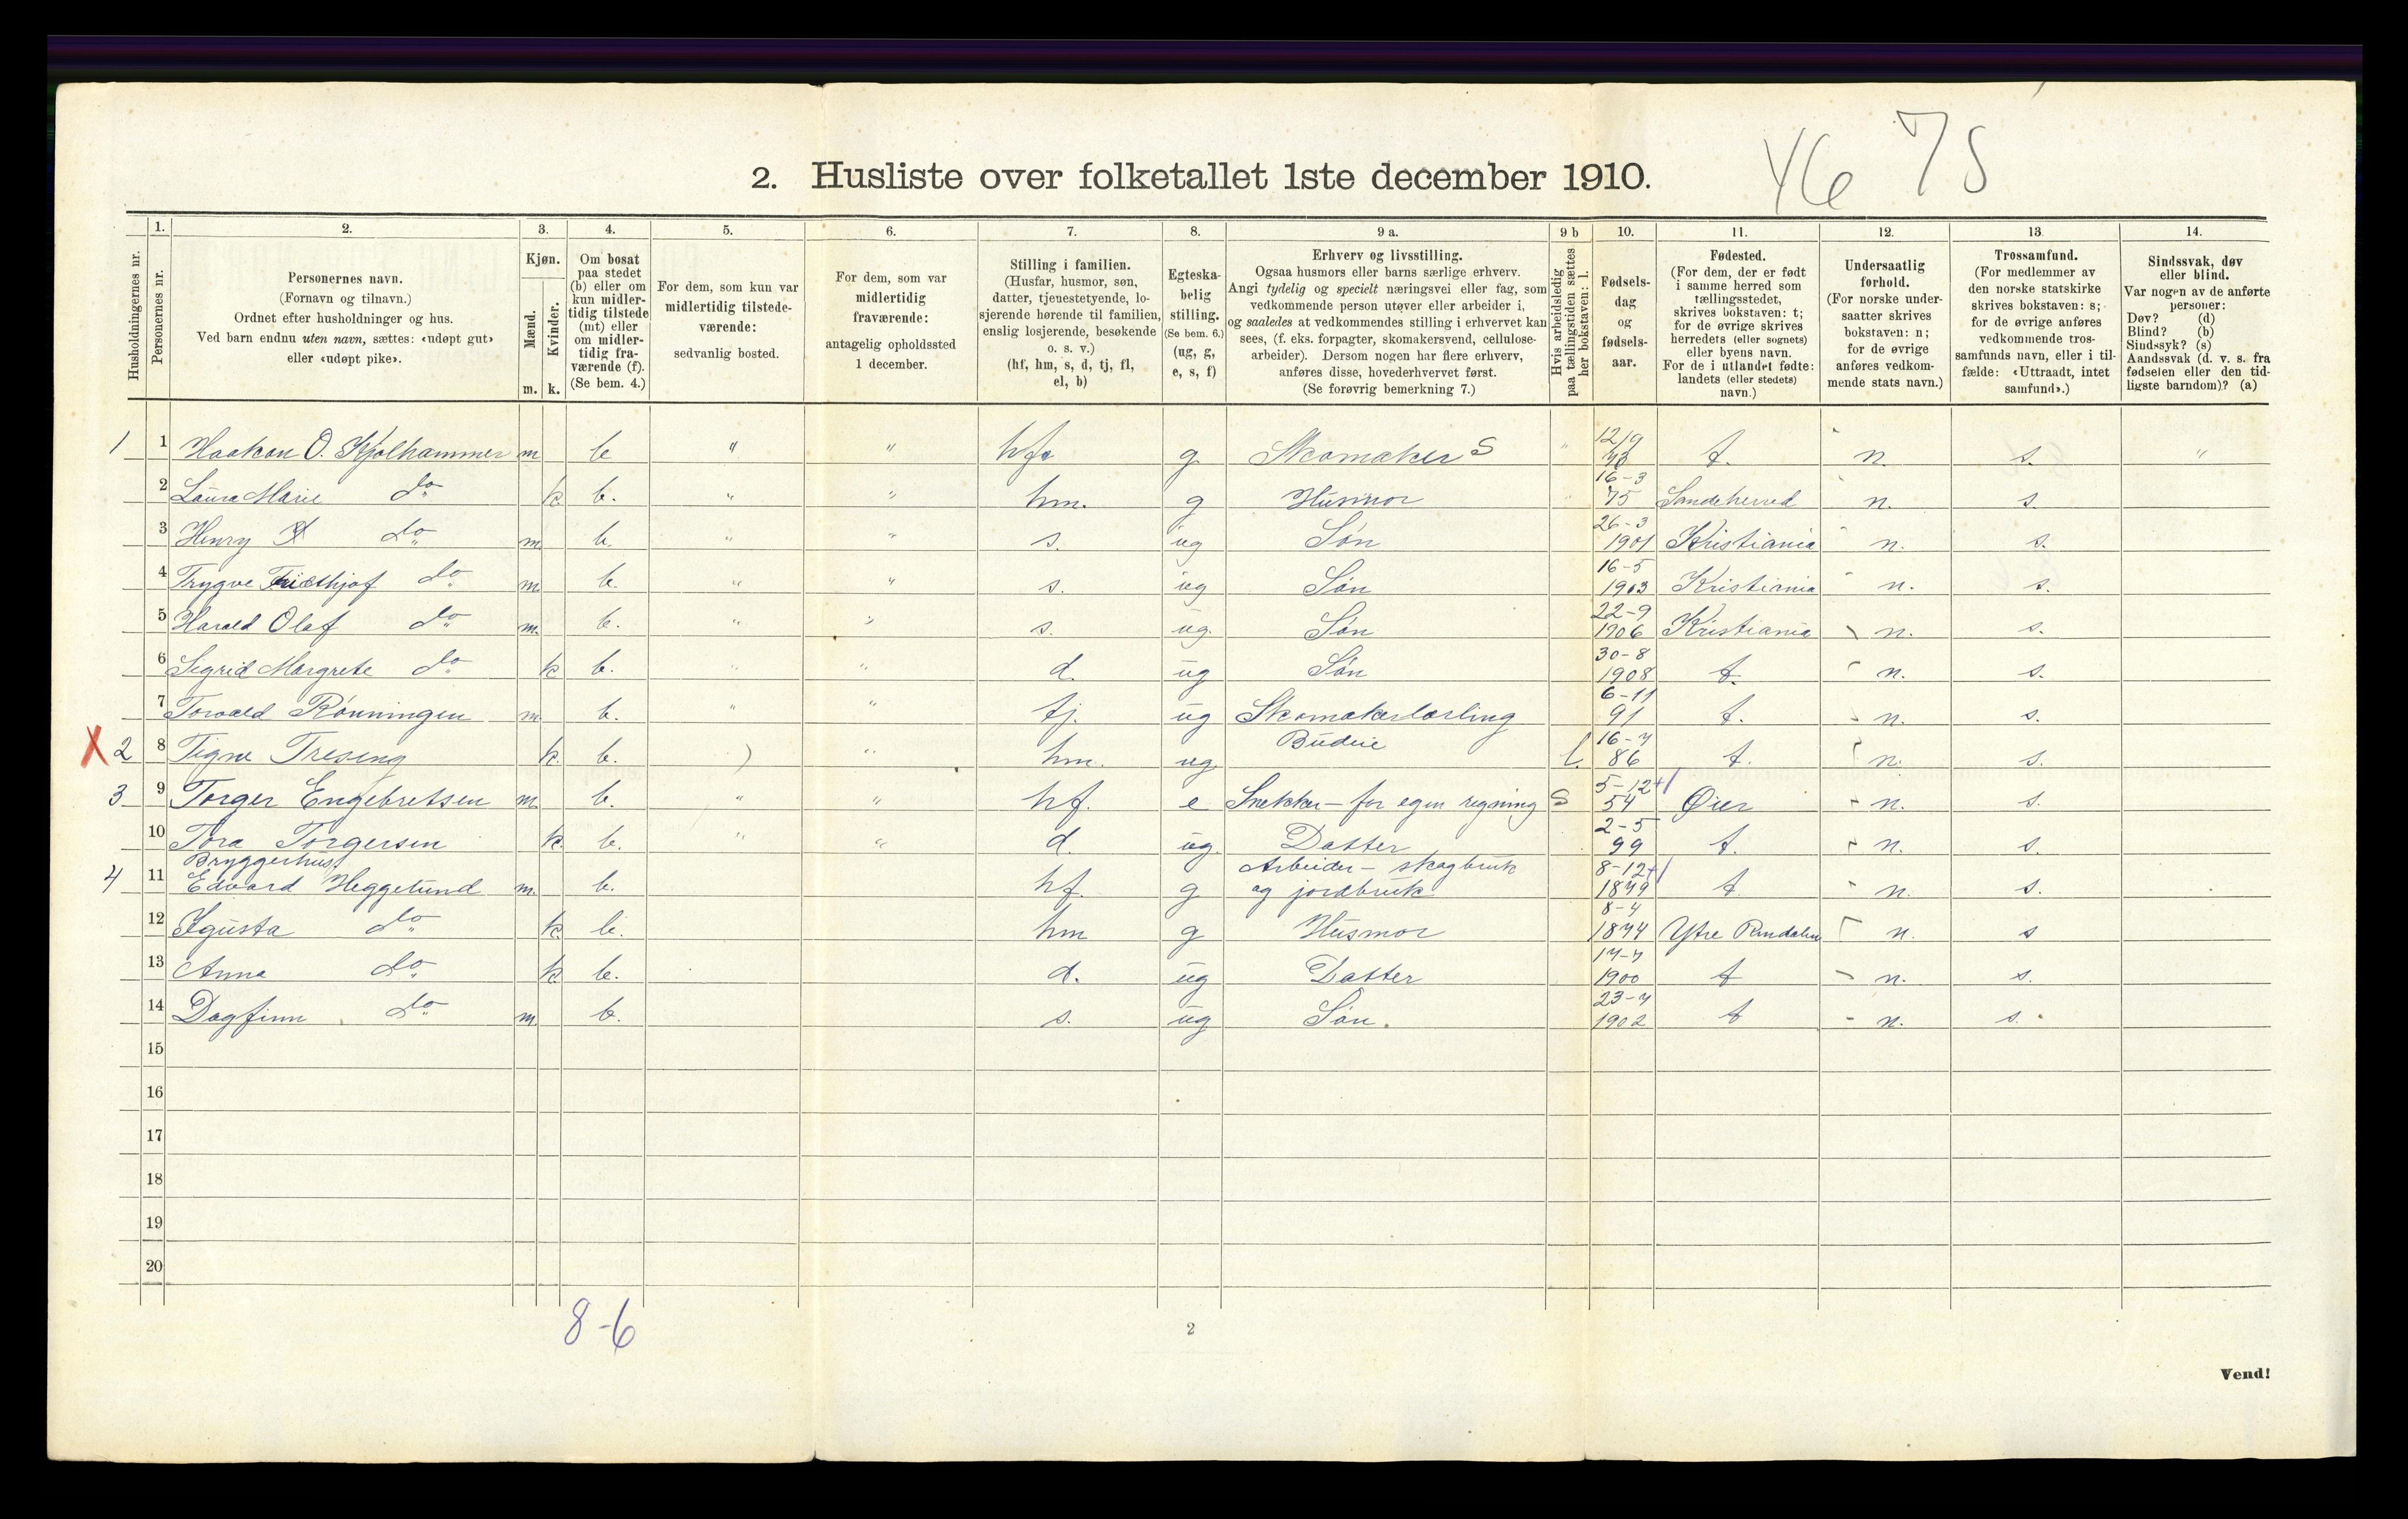 46 75
2. Husliste over folketallet 1ste december 1910.
Husholdningernes nr.
1.
Personernes nr.
2.
Personernes navn.
(Fornavn og tilnavn.)
Ordnet efter husholdninger og hus.
Ved barn endnu uten navn, sættes: «udøpt gut»
eller «udøpt pike».
3.
Kjøn.
Mænd.
Kvinder.
m. k.
4.
Om bosat
paa stedet
(b) eller om
kun midler-
tidig tilstede
(mt) eller
om midler-
tidig fra-
værende (f).
(Se bem. 4.)
5.
For dem, som kun var
midlertidig tilstede-
værende:
sedvanlig bosted.
6.
For dem, som var
midlertidig
fraværende:
antagelig opholdssted
1 december.
7.
Stilling i familien.
(Husfar, husmor, søn,
datter, tjenestetyende, lo-
sjerende hørende til familien,
enslig losjerende, besøkende
o. s. v.)
(hf, hm, s, d, tj, fl,
el, b)
8.
Egteska-
belig
stilling.
(Se bem. 6.)
(ug, g,
e, s, f)
9 a.
Erhverv og livsstilling.
Ogsaa husmors eller barns særlige erhverv.
Angi tydelig og specielt næringsvei eller fag, som
vedkommende person utøver eller arbeider i,
og saaledes at vedkommendes stilling i erhvervet kan
sees, (f. eks. forpagter, skomakersvend, cellulose-
arbeider). Dersom nogen har flere erhverv,
anføres disse, hovederhvervet først.
(Se forøvrig bemerkning 7.)
9 b
Hvis arbeidsledig
paa tællingstiden sættes
her bokstaven: l.
10.
Fødsels-
dag
og
fødsels-
aar.
11.
Fødested.
(For dem, der er født
i samme herred som
tællingsstedet,
skrives bokstaven: t;
for de øvrige skrives
herredets (eller sognets)
eller byens navn.
For de i utlandet fødte:
landets (eller stedets)
navn.)
12.
Undersaatlig
forhold.
(For norske under-
saatter skrives
bokstaven: n;
for de øvrige
anføres vedkom-
mende stats navn.)
13.
Trossamfund.
(For medlemmer av
den norske statskirke
skrives bokstaven: s;
for de øvrige anføres
vedkommende tros-
samfunds navn, eller i til-
fælde: «Uttraadt, intet
samfund».)
14.
Sindssvak, døv
eller blind.
Var nogen av de anførte
personer:
Døv? (d)
Blind? (b)
Sindssyk? (s)
Aandssvak (d. v. s. fra
fødselen eller den tid-
ligste barndom)? (a)
1 1 Haakon O. Kjølhammer m b " " hf g Skomaker S " 12/9 t. n. s. "
2 Laura Marie do k b. " " hm. g Husmor 16-3 75 Sandeherred n. s.
3 Henry do m. b. " " s. ug Søn 26-3 1901 Kristiania n. s.
4 Trygve do m. b. " " s. ug Søn 16-5 1903 Kristiania n. s.
5 Harald Olaf do m. b. " " s. ug. Søn 22-9 1906 Kristiania n. s.
6 Sigrid Margrete do k b. " " d. ug Søn 30-8 1908 t. n. s.
7 Torvald Rønningen m. b. " " tj. ug Skomakerlærling 6-11 91 t. n. s.
X 2 8 Signe Treseng k. b. " hm. ug. Budeie l. 16-7 86 t. n. s.
3 9 Torger Engebretsen m. b. " " hf. e Snekker - for egen regning S 5-12 54 Øier n. s.
10 Tora Torgersen k. b. " " d. ug. Datter 2-5 99 t. n. s.
Bryggerhus
4 11 Edvard Heggelund m. b. hf. g Arbeider - skogbruk og jordbruk 8-12 1849 t. n. s.
12 do k. b. hm g Husmor 8-4 Ytre Rendalen n. s
13 Anna do k. b. d. ug Datter 17-7 1900 t n. s.
14 Dagfinn do m. b. s. ug Søn. 23-7 1902 t n. s.
15
16
17
18
19
20
8-6
2
Vend!